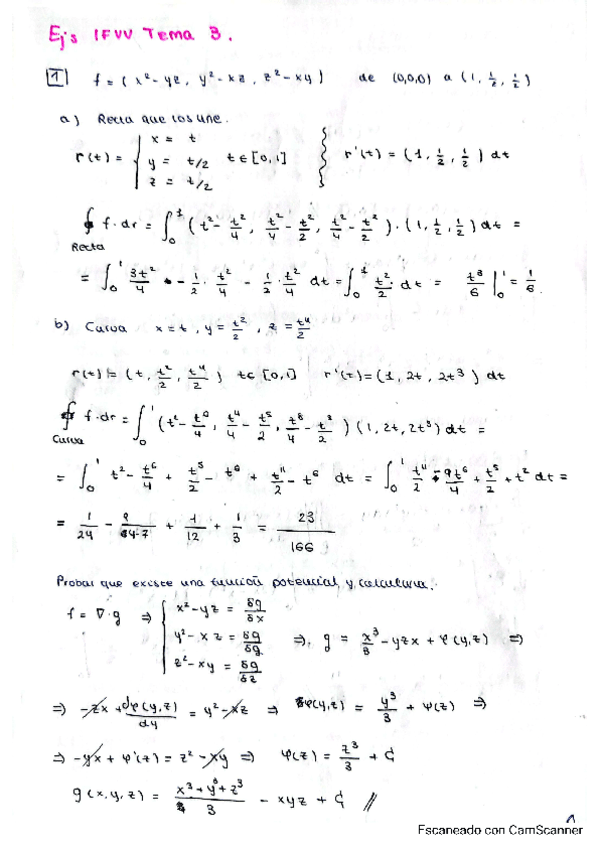 Ej's IFVV Tema 3.
1 f = (x²-yz, y²-xz, z²-xy) de (0,0,0) a (1, 1/2, 1/2)
a) Recta que los une.
r(t) = { x = t y = t/2 z = t/2 t∈[0,1] } r'(t) = (1, 1/2, 1/2) dt
∮ f·dr = ∫₀¹ (t² - t²/4, t²/4 - t²/2, t²/4 - t²/2)·(1, 1/2, 1/2) dt =
Recta
= ∫₀¹ 3t²/4 - 1/2 · t²/4 - 1/2 · t²/4 dt = ∫₀¹ t²/2 dt = t³/6 |₀¹ = 1/6.
b) Curva x = t, y = t²/2, z = t⁴/2
r(t) = (t, t²/2, t⁴/2) t∈[0,1] r'(t) = (1, 2t, 2t³) dt
∮ f·dr = ∫₀¹ (t² - t⁶/4, t⁴/4 - t⁵/2, t⁸/4 - t²/2)(1, 2t, 2t³) dt =
Curva
= ∫₀¹ t² - t⁶/4 + t⁵/2 - t⁶ + t¹¹/2 - t⁶ dt = ∫₀¹ t¹¹/2 - 9t⁶/4 + t⁵/2 + t² dt =
= 1/24 - 9/(4·7) + 1/12 + 1/3 = 23/166
Probar que existe una función potencial y calcularla.
f = ∇·g ⇒ { x²-yz = δg/δx y²-xz = δg/δy z²-xy = δg/δz ⇒ g = x³/3 - yzx + φ(y,z) ⇒
⇒ -zx + dφ(y,z)/dy = y²-xz ⇒ φ(y,z) = y³/3 + ψ(z) ⇒
⇒ -yx + φ'(z) = z²-xy ⇒ φ(z) = z³/3 + C
g(x,y,z) = x³+y³+z³/3 - xyz + C //
1
Escaneado con CamScanner